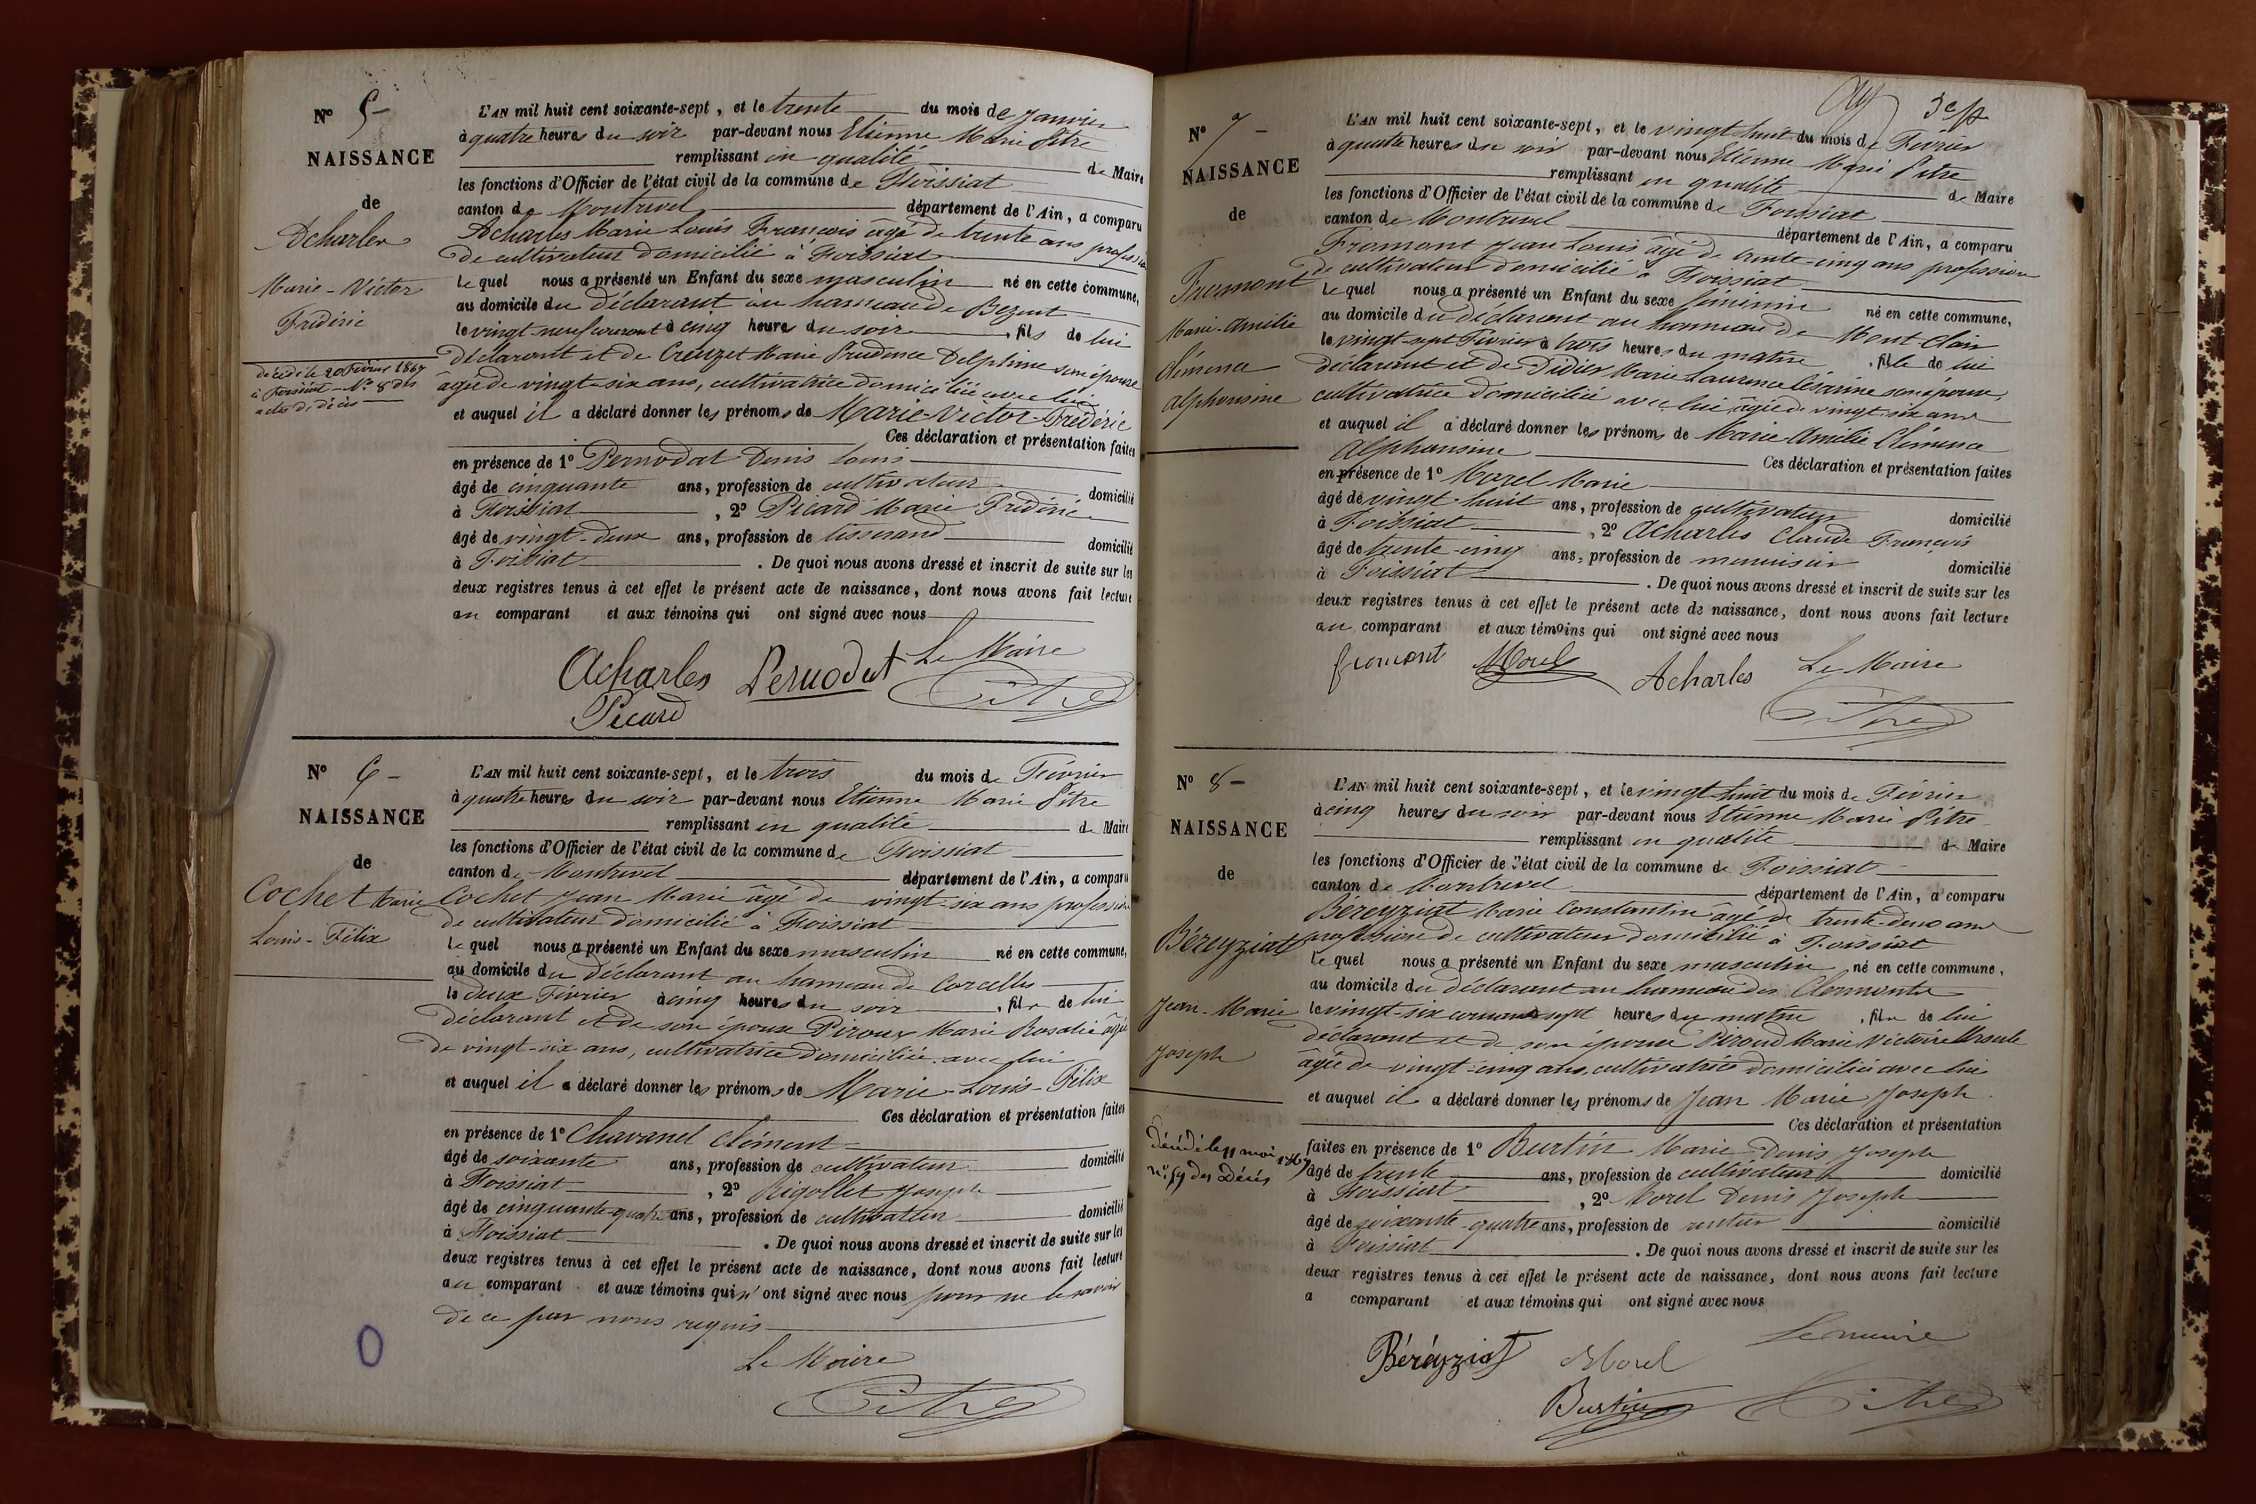 N° 5 –
NAISSANCE
de
Acharles
Marie-Victor
Frédéric
décédé le 20 Février 1867
à Foissiat – N° 8 des
actes de décès
L'AN mil huit cent soixante-sept, et le trente du mois de Janvier
à quatre heures du soir par-devant nous Etienne Marie Pitre
remplissant en qualité de Maire
les fonctions d'Officier de l'état civil de la commune de Foissiat
canton de Montrevel département de l'Ain, a comparu
Acharles Marie Louis François âgé de trente ans profession
de cultivateur domicilié à Foissiat
lequel nous a présenté un Enfant du sexe masculin né en cette commune,
au domicile du déclarant au hameau de Bezent
le vingt-neuf courant à cinq heures du soir , fils de lui
déclarant et de Creuzet Marie Prudence Delphine son épouse
âgée de vingt-six ans, cultivatrice domiciliée avec lui
et auquel il a déclaré donner les prénoms de Marie-Victor-Frédéric
Ces déclaration et présentation faites
en présence de 1° Pernodat Denis Louis
âgé de cinquante ans, profession de cultivateur domicilié
à Foissiat , 2° Picard Marie Frédéric
âgé de vingt-deux ans, profession de tisserand domicilié
à Foissiat . De quoi nous avons dressé et inscrit de suite sur les
deux registres tenus à cet effet le présent acte de naissance, dont nous avons fait lecture
au comparant et aux témoins qui ont signé avec nous
Le Maire
Acharles Pernodat Pitre
Picard
N° 6 –
NAISSANCE
de
Cochet Marie
Louis-Félix
L'AN mil huit cent soixante-sept, et le trois du mois de Février
à quatre heures du soir par-devant nous Etienne Marie Pitre
remplissant en qualité de Maire
les fonctions d'Officier de l'état civil de la commune de Foissiat
canton de Montrevel département de l'Ain, a comparu
Cochet Jean Marie âgé de vingt-six ans profession
de cultivateur domicilié à Foissiat
lequel nous a présenté un Enfant du sexe masculin né en cette commune,
au domicile du déclarant au hameau de Corcelles
le deux Février à cinq heures du soir , fils de lui
déclarant et de son épouse Piroux Marie Rosalie âgée
de vingt-six ans, cultivatrice domiciliée avec lui
et auquel il a déclaré donner les prénoms de Marie-Louis-Félix
Ces déclaration et présentation faites
en présence de 1° Chavanel Clément
âgé de soixante ans, profession de cultivateur domicilié
à Foissiat , 2° Rigollet Joseph
âgé de cinquante-quatre ans, profession de cultivateur domicilié
à Foissiat . De quoi nous avons dressé et inscrit de suite sur les
deux registres tenus à cet effet le présent acte de naissance, dont nous avons fait lecture
au comparant et aux témoins qui n'ont signé avec nous pour ne le savoir
de ce par nous requis
Le Maire
Pitre
N° 7 –
NAISSANCE
de
Fromont
Marie-Amélie
Clémence
Alphonsine
L'AN mil huit cent soixante-sept, et le vingt huit du mois de Février
à quatre heures du soir par-devant nous Etienne Marie Pitre
remplissant en qualité de Maire
les fonctions d'Officier de l'état civil de la commune de Foissiat
canton de Montrevel département de l'Ain, a comparu
Fromont Jean Louis âgé de trente-cinq ans profession
de cultivateur domicilié à Foissiat
lequel nous a présenté un Enfant du sexe féminin né en cette commune,
au domicile du déclarant au hameau de Mont Clair
le vingt-sept Février à trois heures du matin , fille de lui
déclarant et de Didier Marie Laurence Césarine son épouse,
cultivatrice domiciliée avec lui âgée de vingt-six ans
et auquel il a déclaré donner les prénoms de Marie Amélie Clémence
Alphonsine Ces déclaration et présentation faites
en présence de 1° Morel Marie
âgé de vingt-huit ans, profession de cultivateur domicilié
à Foissiat , 2° Acharles Claude François
âgé de trente-cinq ans, profession de menuisier domicilié
à Foissiat . De quoi nous avons dressé et inscrit de suite sur les
deux registres tenus à cet effet le présent acte de naissance, dont nous avons fait lecture
au comparant et aux témoins qui ont signé avec nous
fromont Morel Acharles Le Maire
Pitre
N° 8 –
NAISSANCE
de
Béreyziat
Jean-Marie
Joseph
Décédé le 11 mai 1867
des Décès
L'AN mil huit cent soixante-sept, et le vingt huit du mois de Février
à cinq heures du soir par-devant nous Etienne Marie Pitre
remplissant en qualité de Maire
les fonctions d'Officier de l'état civil de la commune de Foissiat
canton de Montrevel département de l'Ain, a comparu
Béreyziat Marie Constantin âgé de trente-deux ans
profession de cultivateur domicilié à Foissiat
lequel nous a présenté un Enfant du sexe masculin né en cette commune,
au domicile du déclarant au hameau des Clermonts
le vingt-six courant à sept heures du matin , fils de lui
déclarant et de son épouse Piroud Marie Victoire Ursule
âgée de vingt-cinq ans, cultivatrice domiciliée avec lui
et auquel il a déclaré donner les prénoms de Jean Marie Joseph
Ces déclaration et présentation
faites en présence de 1° Burtin Marie Denis Joseph
âgé de trente ans, profession de cultivateur domicilié
à Foissiat , 2° Morel Denis Joseph
âgé de soixante-quatre ans, profession de rentier domicilié
à Foissiat . De quoi nous avons dressé et inscrit de suite sur les
deux registres tenus à cet effet le présent acte de naissance, dont nous avons fait lecture
a comparant et aux témoins qui ont signé avec nous
Le maire
Béréyziat Morel
Burtin Pitre